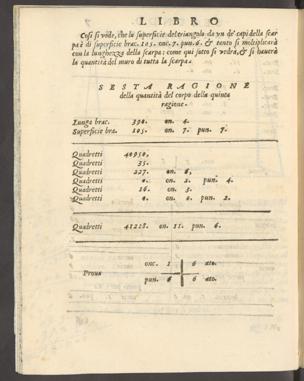 LIBRO
Cosi si vede, che la superficie del triangolo da vn de' capi della scar
pa è di superficie brac. 105. onc. 7. pun. 6. & tanto si multiplicarà
con la lunghezza della scarpa: come qui sotto si vedrà, & si hauerà
la quantità del muro di tutta la scarpa.
SESTA RAGIONE
della quantità del corpo della quinta
ragione.
Lunga brac. 390. on. 4.
Superficie bra. 105. on. 7. pun. 7.
Quadretti 40950,
Quadretti 35.
Quadretti 227. on. 6,
Quadretti 0. on. 2. pun. 4.
Quadretti 16. on. 3.
Quadretti 0. on. 0. pun. 2.
Quadretti 41228. on. 11. pun. 6.
onc. 1 6 ato.
Proua
pun. 6 6 ato.